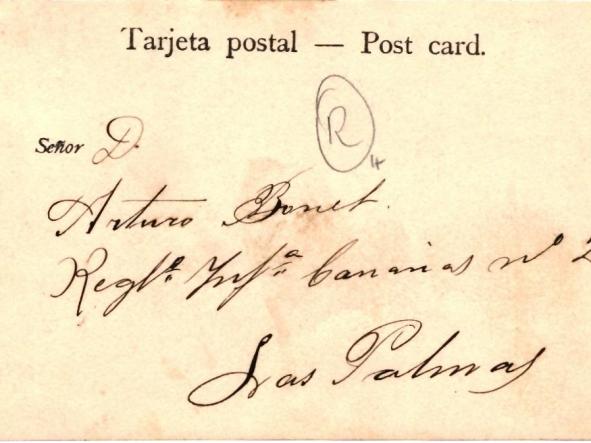 Tarjeta postal — Post card.
R
4
Señor D.
Arturo Bonet.
Regto Infa Canarias nº 2
Las Palmas